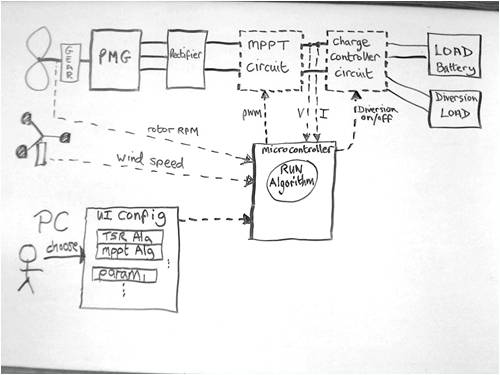 GEAR
PMG
Rectifier
MPPT
circuit
charge
controller
circuit
LOAD
Battery
Diversion
LOAD
pwm
V
I
Diversion
on/off
rotor RPM
wind speed
microcontroller
RUN
Algorithm
PC
choose
UI config
TSR Alg
mppt Alg
param1